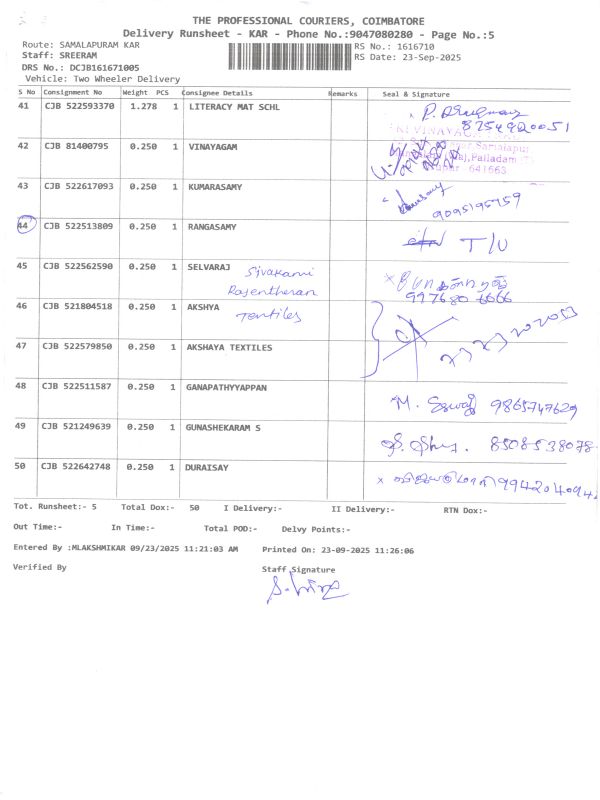 THE PROFESSIONAL COURIERS, COIMBATORE
Delivery Runsheet - KAR - Phone No.:9047080280 - Page No.:5
Route: SAMALAPURAM KAR RS No.: 1616710
Staff: SREERAM RS Date: 23-Sep-2025
DRS No.: DCJB161671005
Vehicle: Two Wheeler Delivery
S No Consignment No Weight PCS Consignee Details Remarks Seal & Signature
41 CJB 522593370 1.278 1 LITERACY MAT SCHL
8754920051
42 CJB 81400795 0.250 1 VINAYAGAM
Palladam
641663
43 CJB 522617093 0.250 1 KUMARASAMY
9095195759
44 CJB 522513809 0.250 1 RANGASAMY T/U
45 CJB 522562590 0.250 1 SELVARAJ Sivakami
Rajentheran
46 CJB 521804518 0.250 1 AKSHYA Textiles
47 CJB 522579850 0.250 1 AKSHAYA TEXTILES
48 CJB 522511587 0.250 1 GANAPATHYYAPPAN
9865747629
49 CJB 521249639 0.250 1 GUNASHEKARAM S
8508538078
50 CJB 522642748 0.250 1 DURAISAY
994204094
Tot. Runsheet:- 5 Total Dox:- 50 I Delivery:- II Delivery:- RTN Dox:-
Out Time:- In Time:- Total POD:- Delvy Points:-
Entered By :MLAKSHMIKAR 09/23/2025 11:21:03 AM Printed On: 23-09-2025 11:26:06
Verified By Staff Signature